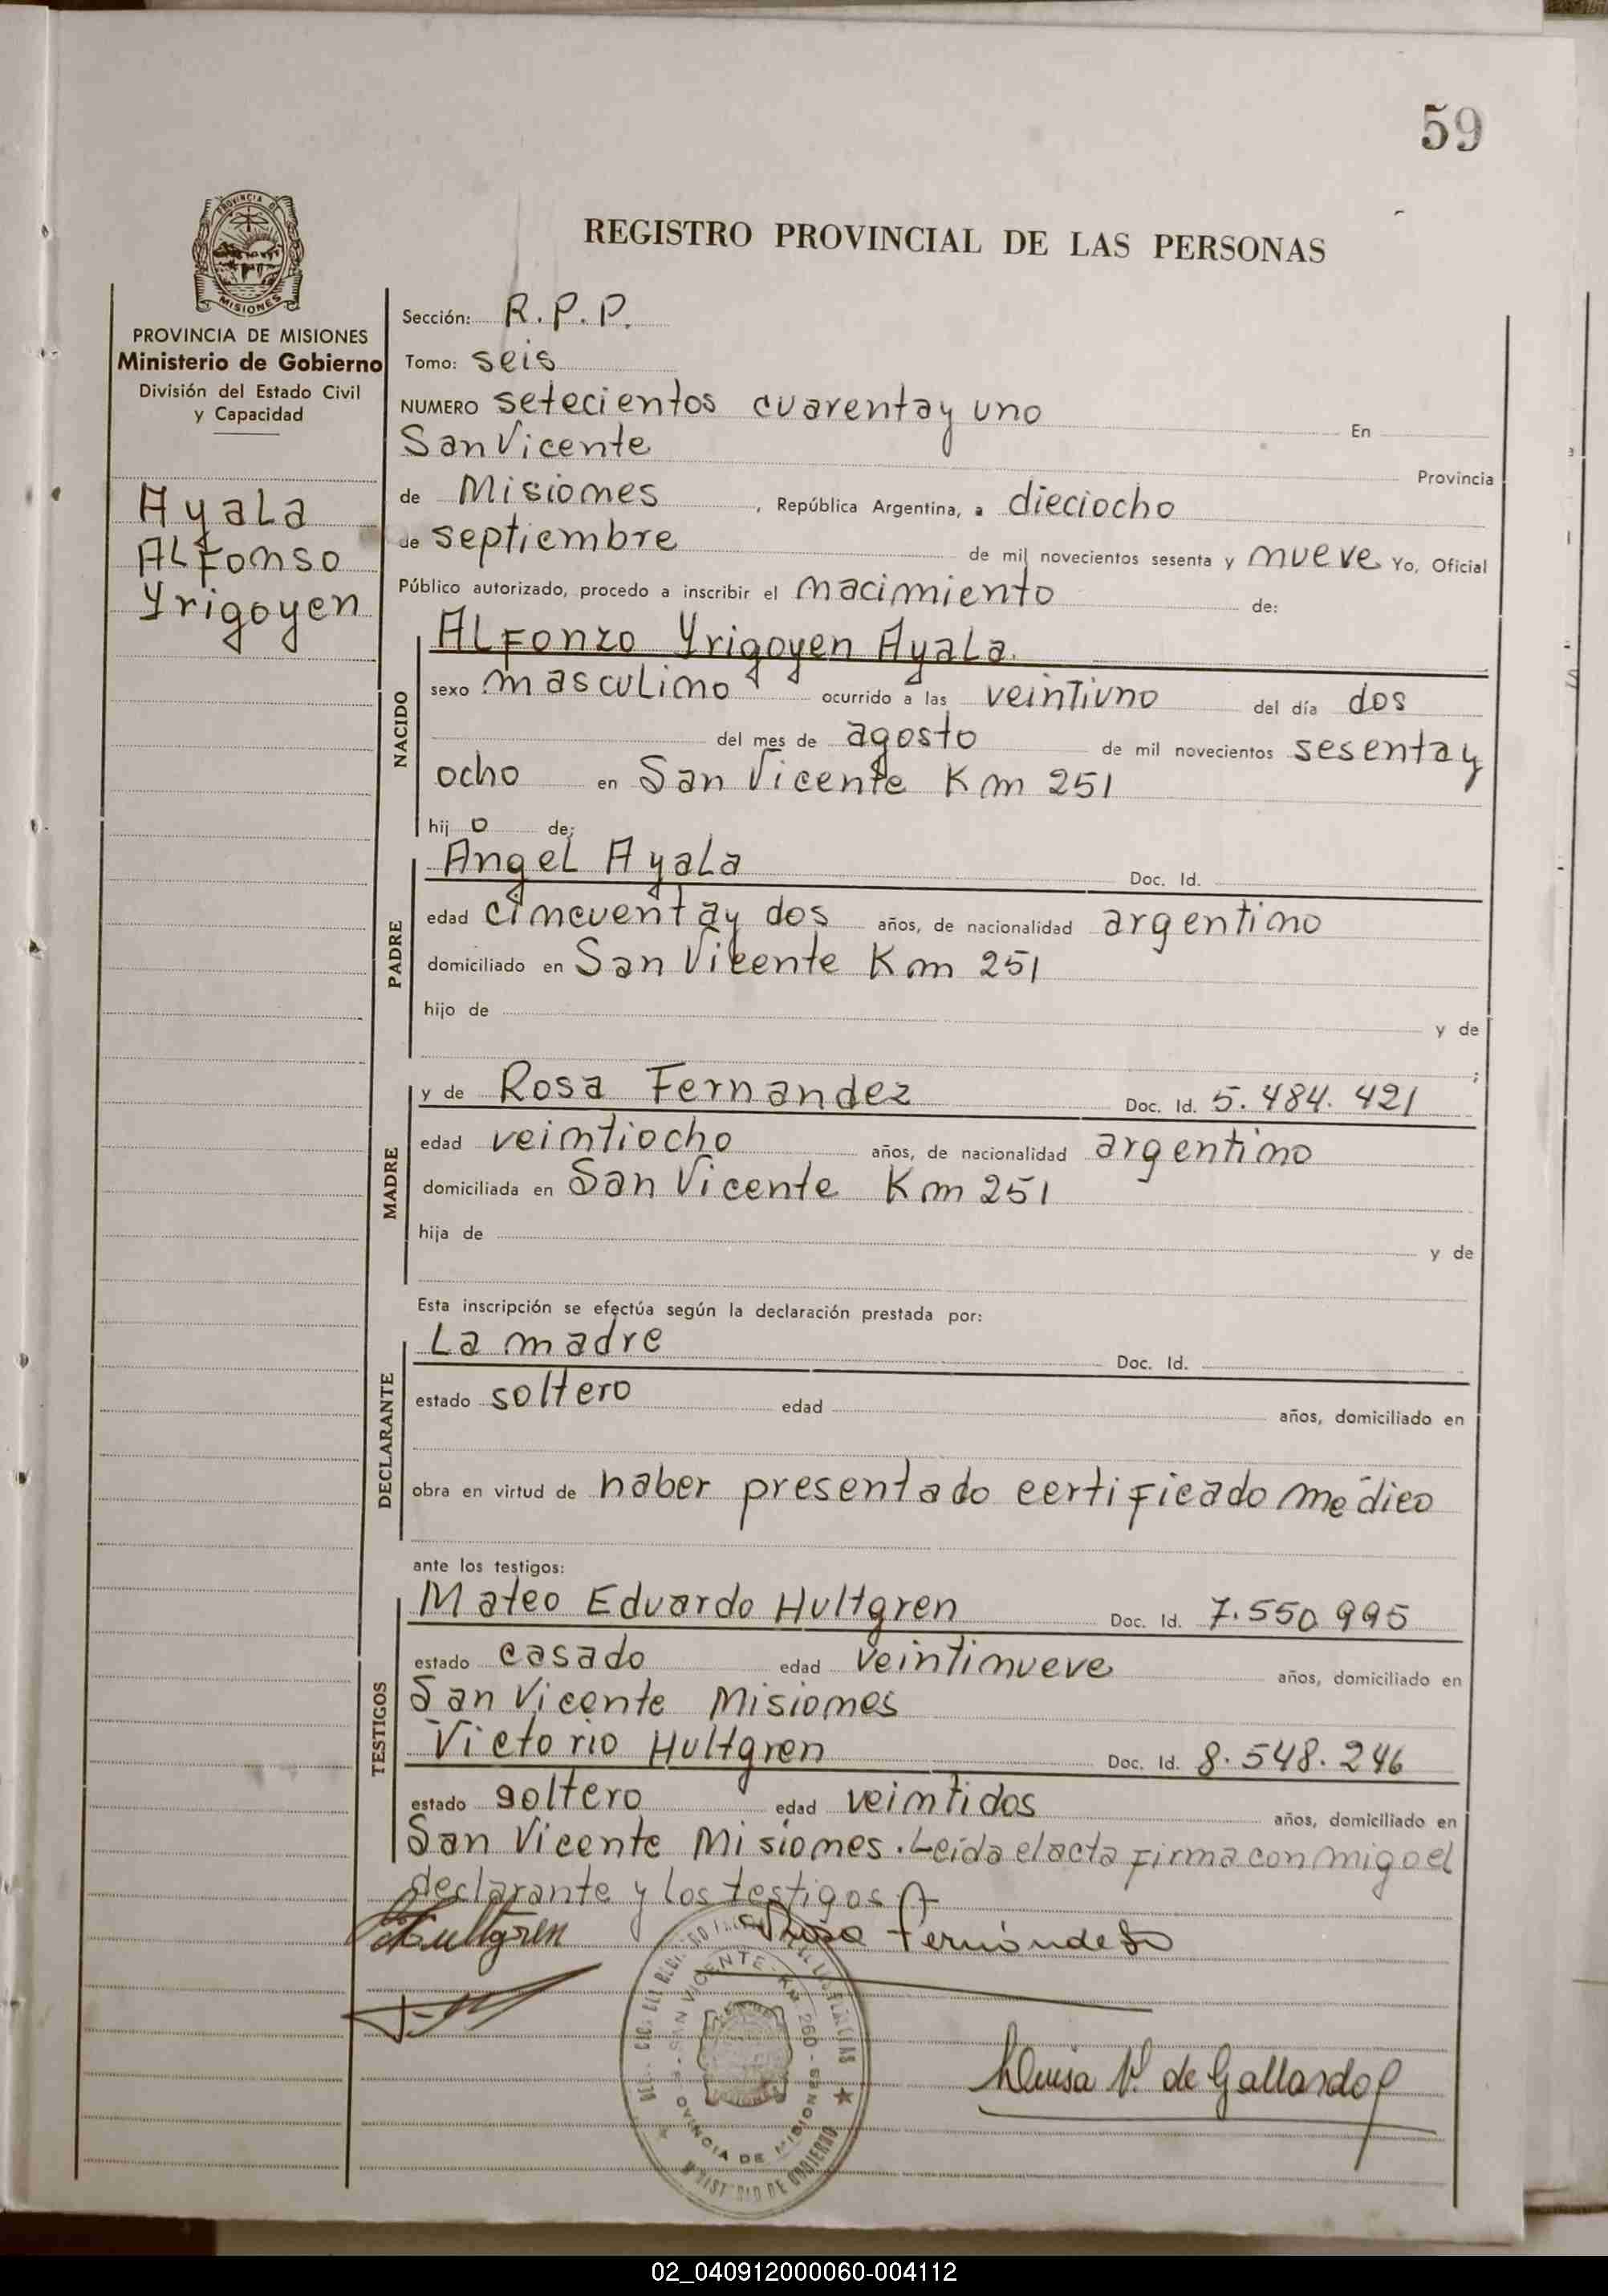 59
PROVINCIA DE
MISIONES
REGISTRO PROVINCIAL DE LAS PERSONAS
PROVINCIA DE MISIONES
Ministerio de Gobierno
División del Estado Civil
y Capacidad
Ayala
ALFonso
Yrigoyen
Sección: R.P.P.
Tomo: seis
NUMERO setecientos cuarentay uno En
San Vicente Provincia
de Misiones, República Argentina, a dieciocho
de septiembre de mil novecientos sesenta y nueve Yo, Oficial
Público autorizado, procedo a inscribir el nacimiento de:
NACIDO
ALFonzo Yrigoyen Ayala.
sexo masculino ocurrido a las veintiuno del día dos
del mes de agosto de mil novecientos sesentay
ocho en San Vicente Km 251
hij o de:
PADRE
Angel Ayala Doc. Id.
edad cincuentay dos años, de nacionalidad argentino
domiciliado en San Vicente Km 251
hijo de y de
;
MADRE
y de Rosa Fernandez Doc. Id. 5.484.421
edad veintiocho años, de nacionalidad argentino
domiciliada en San Vicente Km 251
hija de y de
Esta inscripción se efectúa según la declaración prestada por:
DECLARANTE
La madre Doc. Id.
estado soltero edad años, domiciliado en
obra en virtud de haber presentado certificado medico
ante los testigos:
TESTIGOS
Mateo Eduardo Hultgren Doc. Id. 7.550.995
estado casado edad veintinueve años, domiciliado en
San Vicente Misiones
Victorio Hultgren Doc. Id. 8.548.246
estado soltero edad veintidos años, domiciliado en
San Vicente Misiones. Leida el acta firma conmigo el
declarante y los testigos
Hultgren Rosa Fernandez
SAN VICENTE - KM 260 - PROVINCIA DE MISIONES
MINISTERIO DE GOBIERNO
Luisa V. de Gallardo
02_040912000060-004112